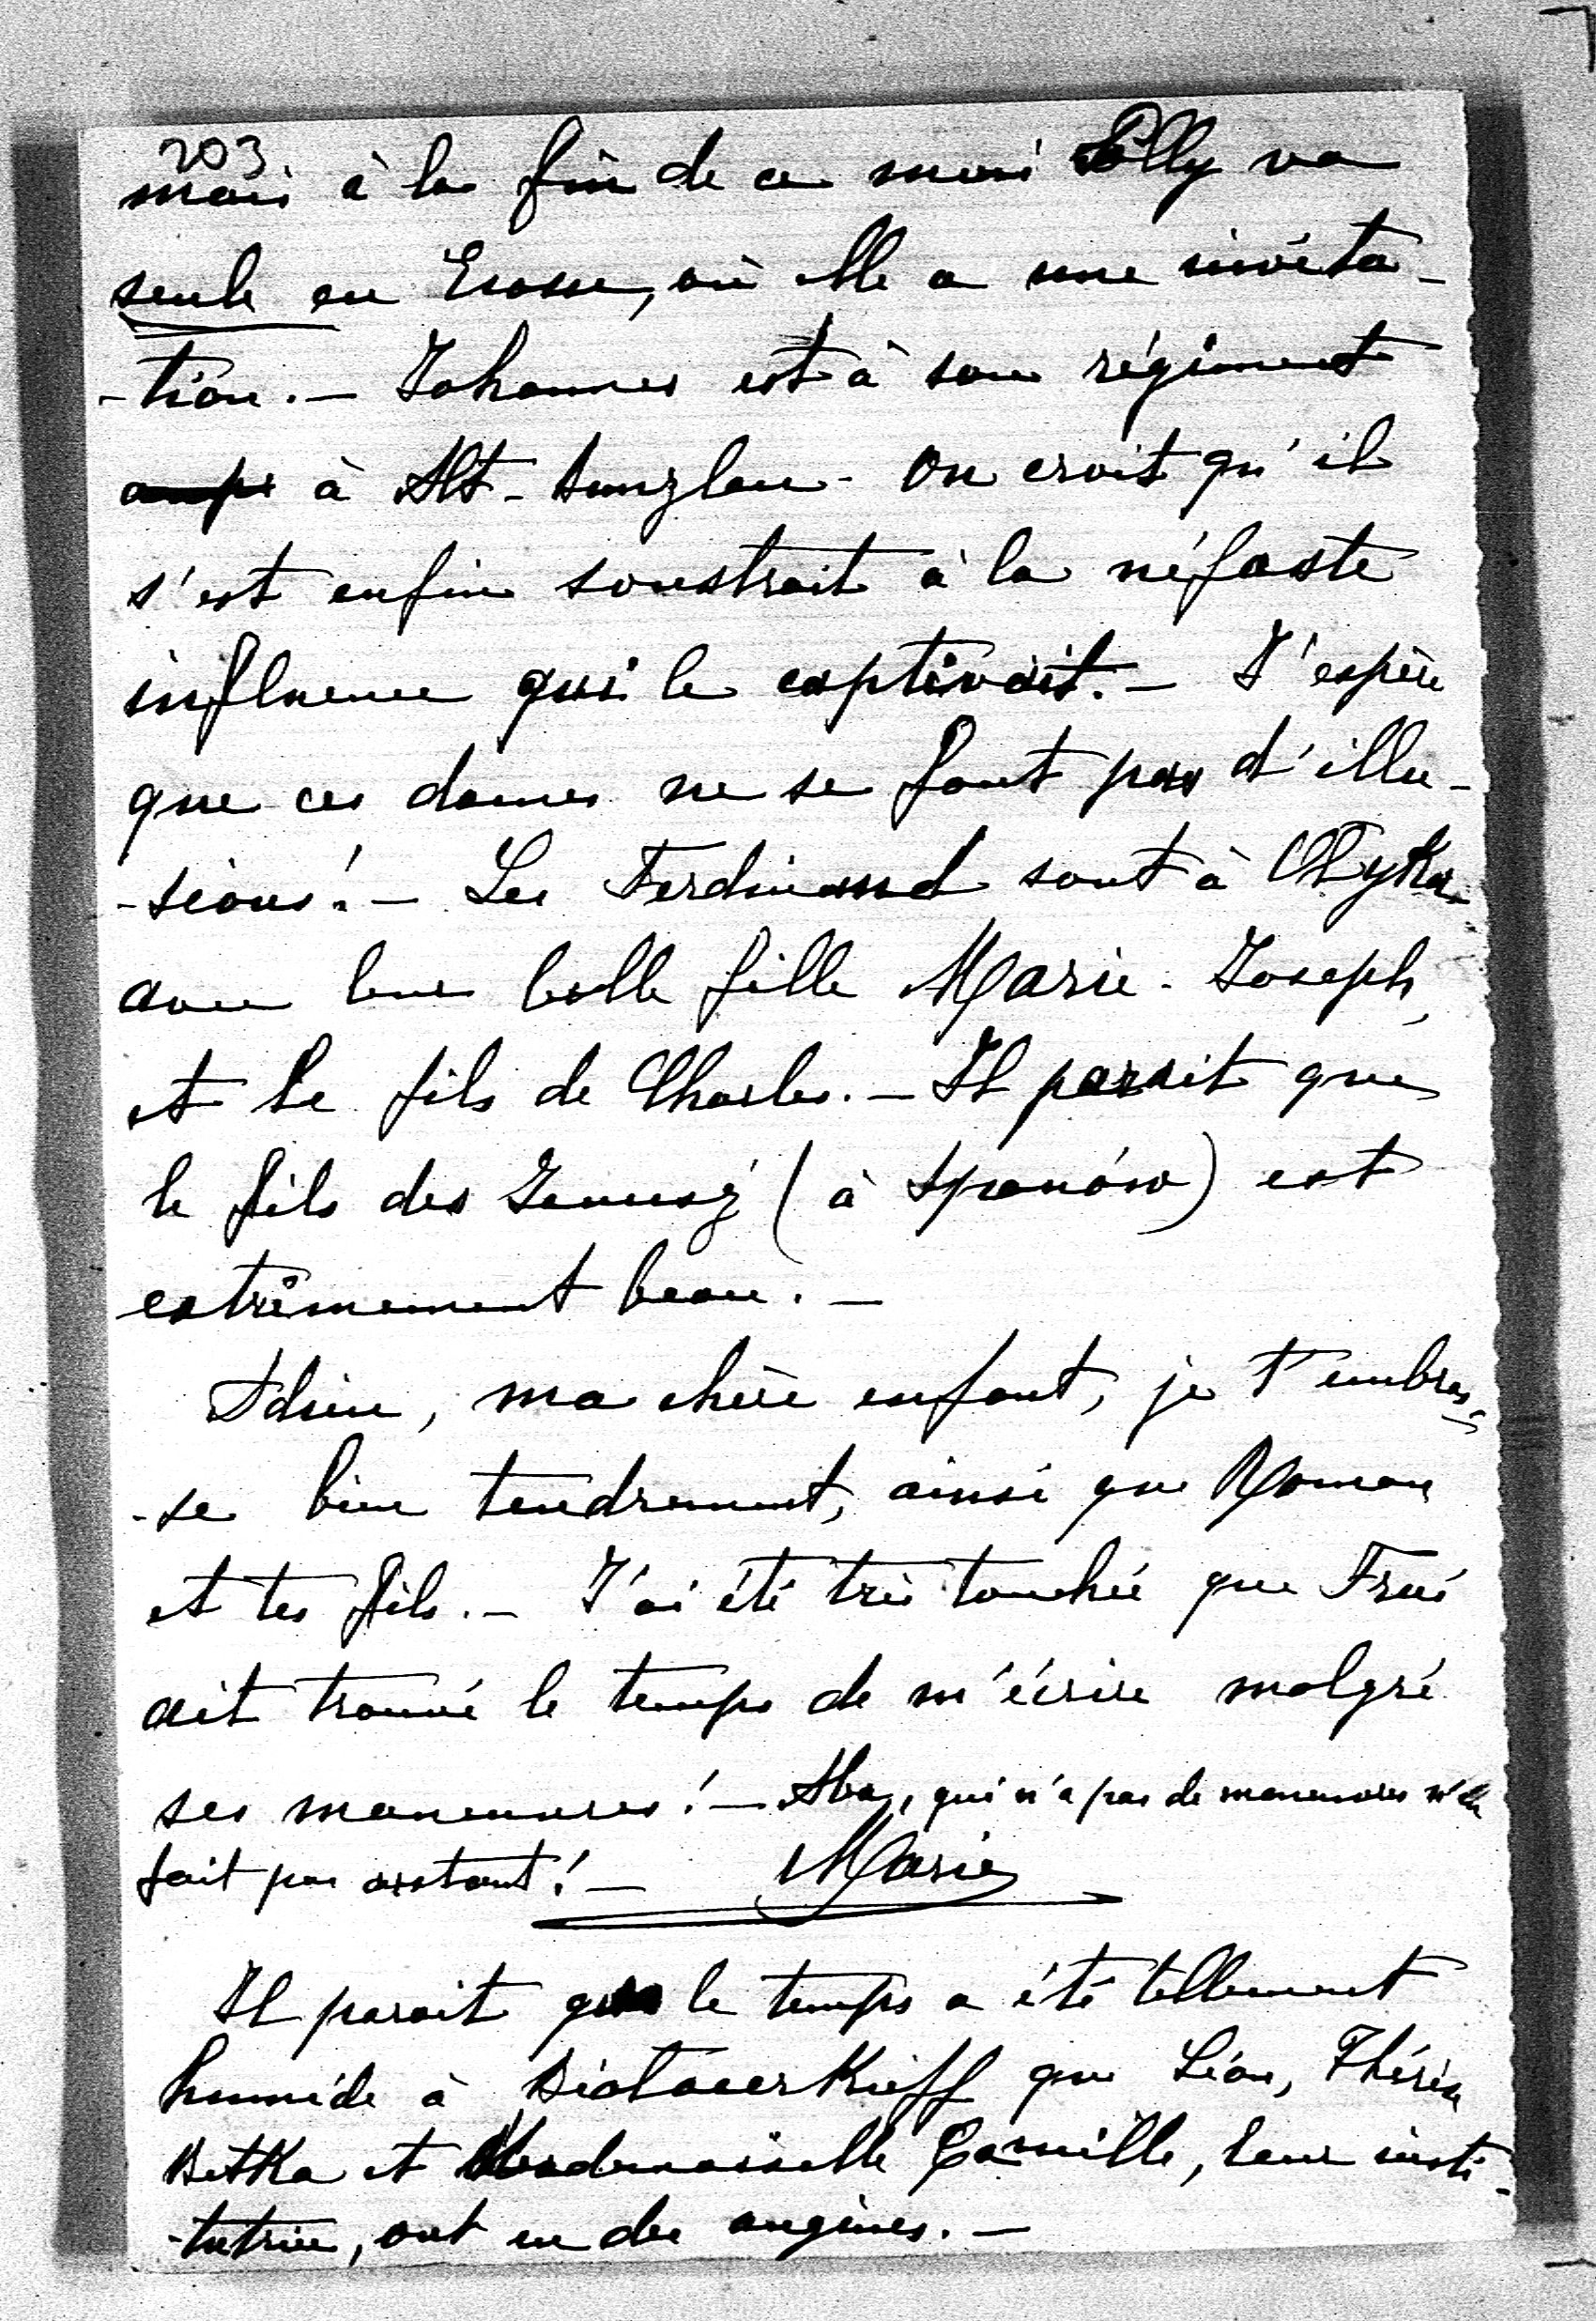 203
mais à la fin de ce mois Lolly va
seule en Ecosse, où elle a une invita-
-tion. — Johannes est à son régiment
à Alt-Bunzlau - On croit qu'il
s'est enfin soustrait à la néfaste
influence qui le captivait. — J'espère
que ces dames ne se font pas d'illu-
-sions! — Les Ferdinand sont à Olyka
avec leur belle fille Marie-Joseph,
et le fils de Charles. — Il parait que
le fils des Janusz (à Spanów) est
extrêmement beau. —
Adieu, ma chère enfant, je t'embras-
-se bien tendrement, ainsi que Roman
et tes fils. — J'ai été très touchée que
ait trouvé le temps de m'écrire malgré
ses manœuvres! — Aba, qui n'a pas de manœuvres n'en
fait pas autant! — Marie
Il parait que le temps a été tellement
humide à Biatacerkieff que Léon, Thérèse
Betka et Mademoiselle Camille, leur insti-
-tutrice, ont eu des angines. —